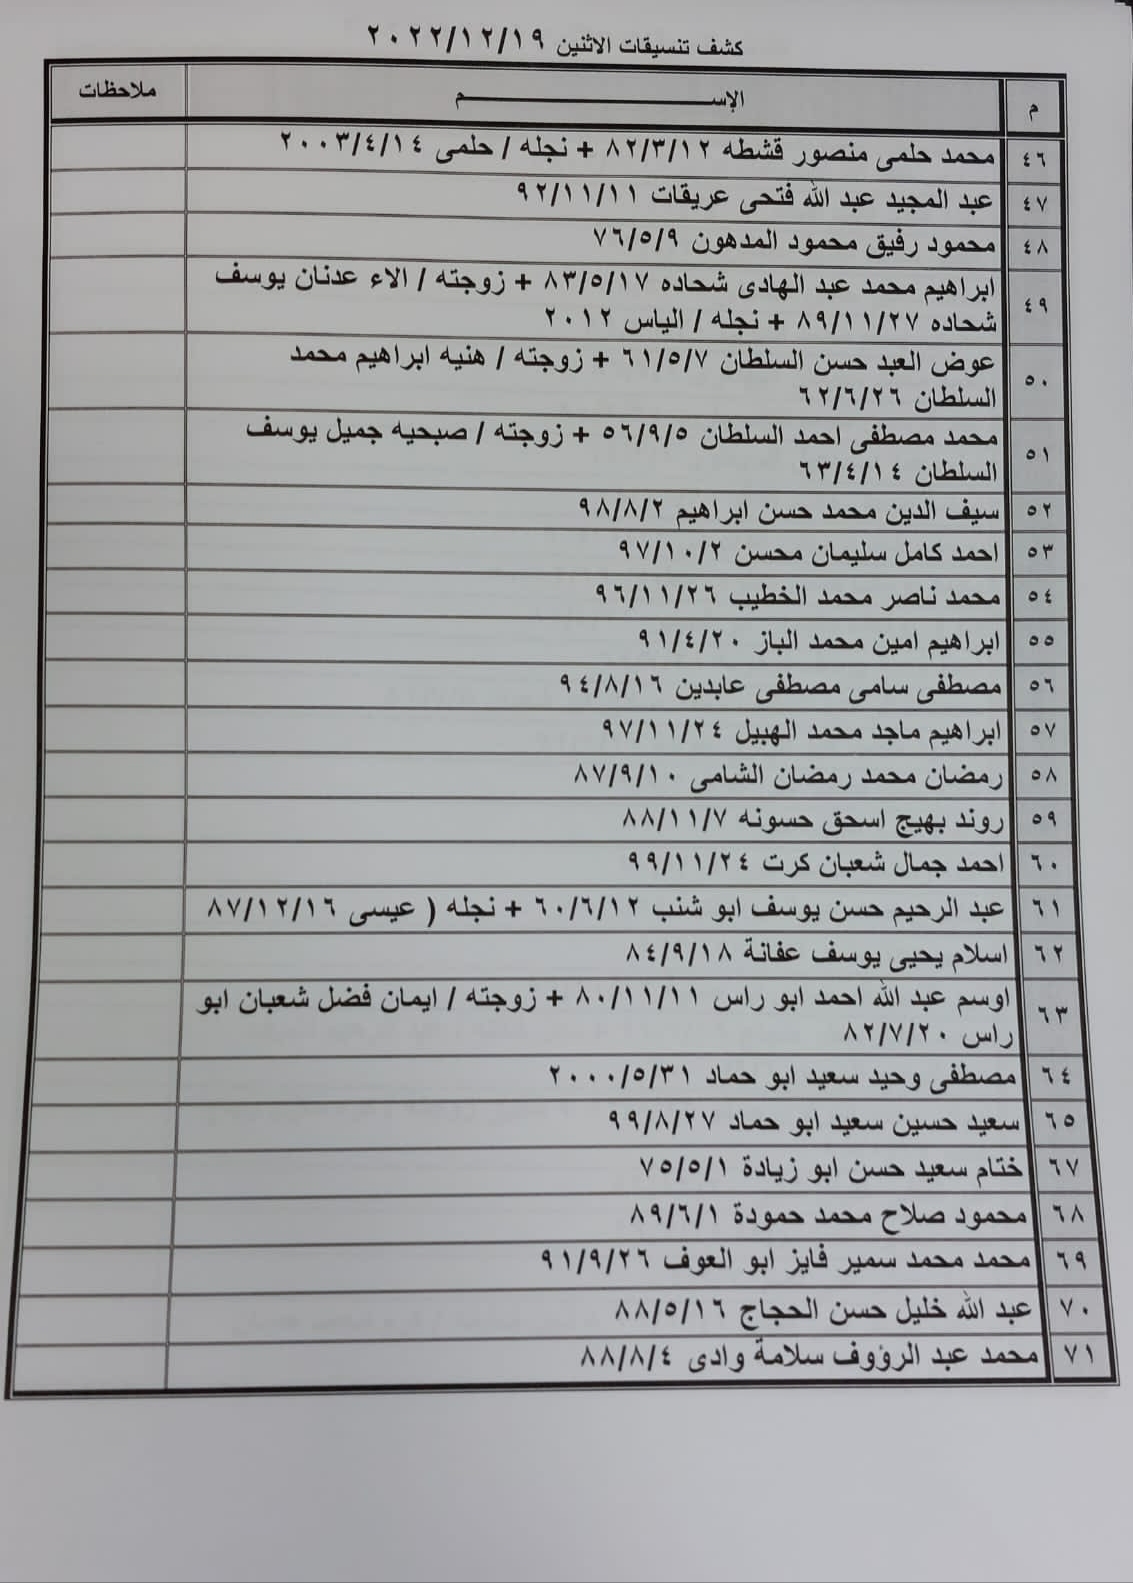 كشف تنسيقات الاثنين ٢٠٢٢/١٢/١٩
م الإســــــــــم ملاحظات
٤٦ محمد حلمى منصور قشطه ٨٢/٣/١٢ + نجله / حلمى ٢٠٠٣/٤/١٤
٤٧ عبد المجيد عبد الله فتحى عريقات ٩٢/١١/١١
٤٨ محمود رفيق محمود المدهون ٧٦/٥/٩
٤٩ ابراهيم محمد عبد الهادى شحاده ٨٣/٥/١٧ + زوجته / الاء عدنان يوسف
شحاده ٨٩/١١/٢٧ + نجله / الياس ٢٠١٢
٥٠ عوض العبد حسن السلطان ٦١/٥/٧ + زوجته / هنيه ابراهيم محمد
السلطان ٦٢/٦/٢٦
٥١ محمد مصطفى احمد السلطان ٥٦/٩/٥ + زوجته / صبحيه جميل يوسف
السلطان ٦٣/٤/١٤
٥٢ سيف الدين محمد حسن ابراهيم ٩٨/٨/٢
٥٣ احمد كامل سليمان محسن ٩٧/١٠/٢
٥٤ محمد ناصر محمد الخطيب ٩٦/١١/٢٦
٥٥ ابراهيم امين محمد الباز ٩١/٤/٢٠
٥٦ مصطفى سامى مصطفى عابدين ٩٤/٨/١٦
٥٧ ابراهيم ماجد محمد الهبيل ٩٧/١١/٢٤
٥٨ رمضان محمد رمضان الشامى ٨٧/٩/١٠
٥٩ روند بهيج اسحق حسونه ٨٨/١١/٧
٦٠ احمد جمال شعبان كرت ٩٩/١١/٢٤
٦١ عبد الرحيم حسن يوسف ابو شنب ٦٠/٦/١٢ + نجله ( عيسى ٨٧/١٢/١٦
٦٢ اسلام يحيى يوسف عفانة ٨٤/٩/١٨
٦٣ اوسم عبد الله احمد ابو راس ٨٠/١١/١١ + زوجته / ايمان فضل شعبان ابو
راس ٨٢/٧/٢٠
٦٤ مصطفى وحيد سعيد ابو حماد ٢٠٠٠/٥/٣١
٦٥ سعيد حسين سعيد ابو حماد ٩٩/٨/٢٧
٦٧ ختام سعيد حسن ابو زيادة ٧٥/٥/١
٦٨ محمود صلاح محمد حمودة ٨٩/٦/١
٦٩ محمد محمد سمير فايز ابو العوف ٩١/٩/٢٦
٧٠ عبد الله خليل حسن الحجاج ٨٨/٥/١٦
٧١ محمد عبد الرؤوف سلامة وادى ٨٨/٨/٤